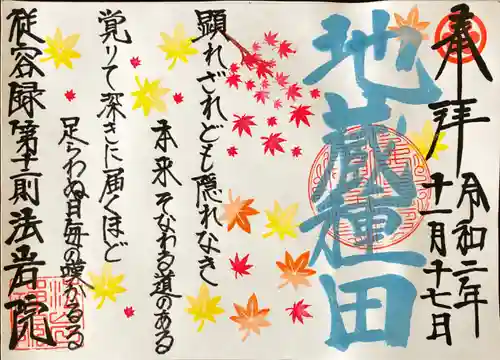 奉拝
令和二年
十一月十七日
地蔵種田
顕れざれども隠れなき
本来そなわる道のある
覚りて深きに届くほど
足らわぬ日毎の
従容録第十二則法岩院